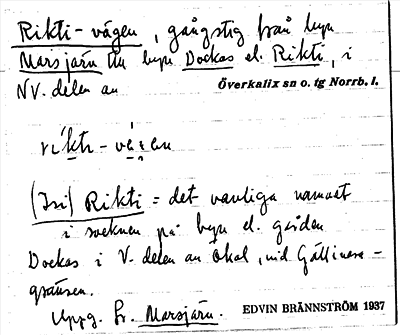 Rikti-vägen, gångstig från byn
Marsjärn till byn Dockas el. Rikti, i
NV. delen av
Överkalix sn o. tg Norrb. l.
rikti-vä́gan
(Isi) Rikti = det vanliga namnet
i socknen på byn el. gården
Dockas i V. delen av Ökal, vid Gällivare-
gränsen.
Uppg. fr. Marsjärn.
EDVIN BRÄNNSTRÖM 1937